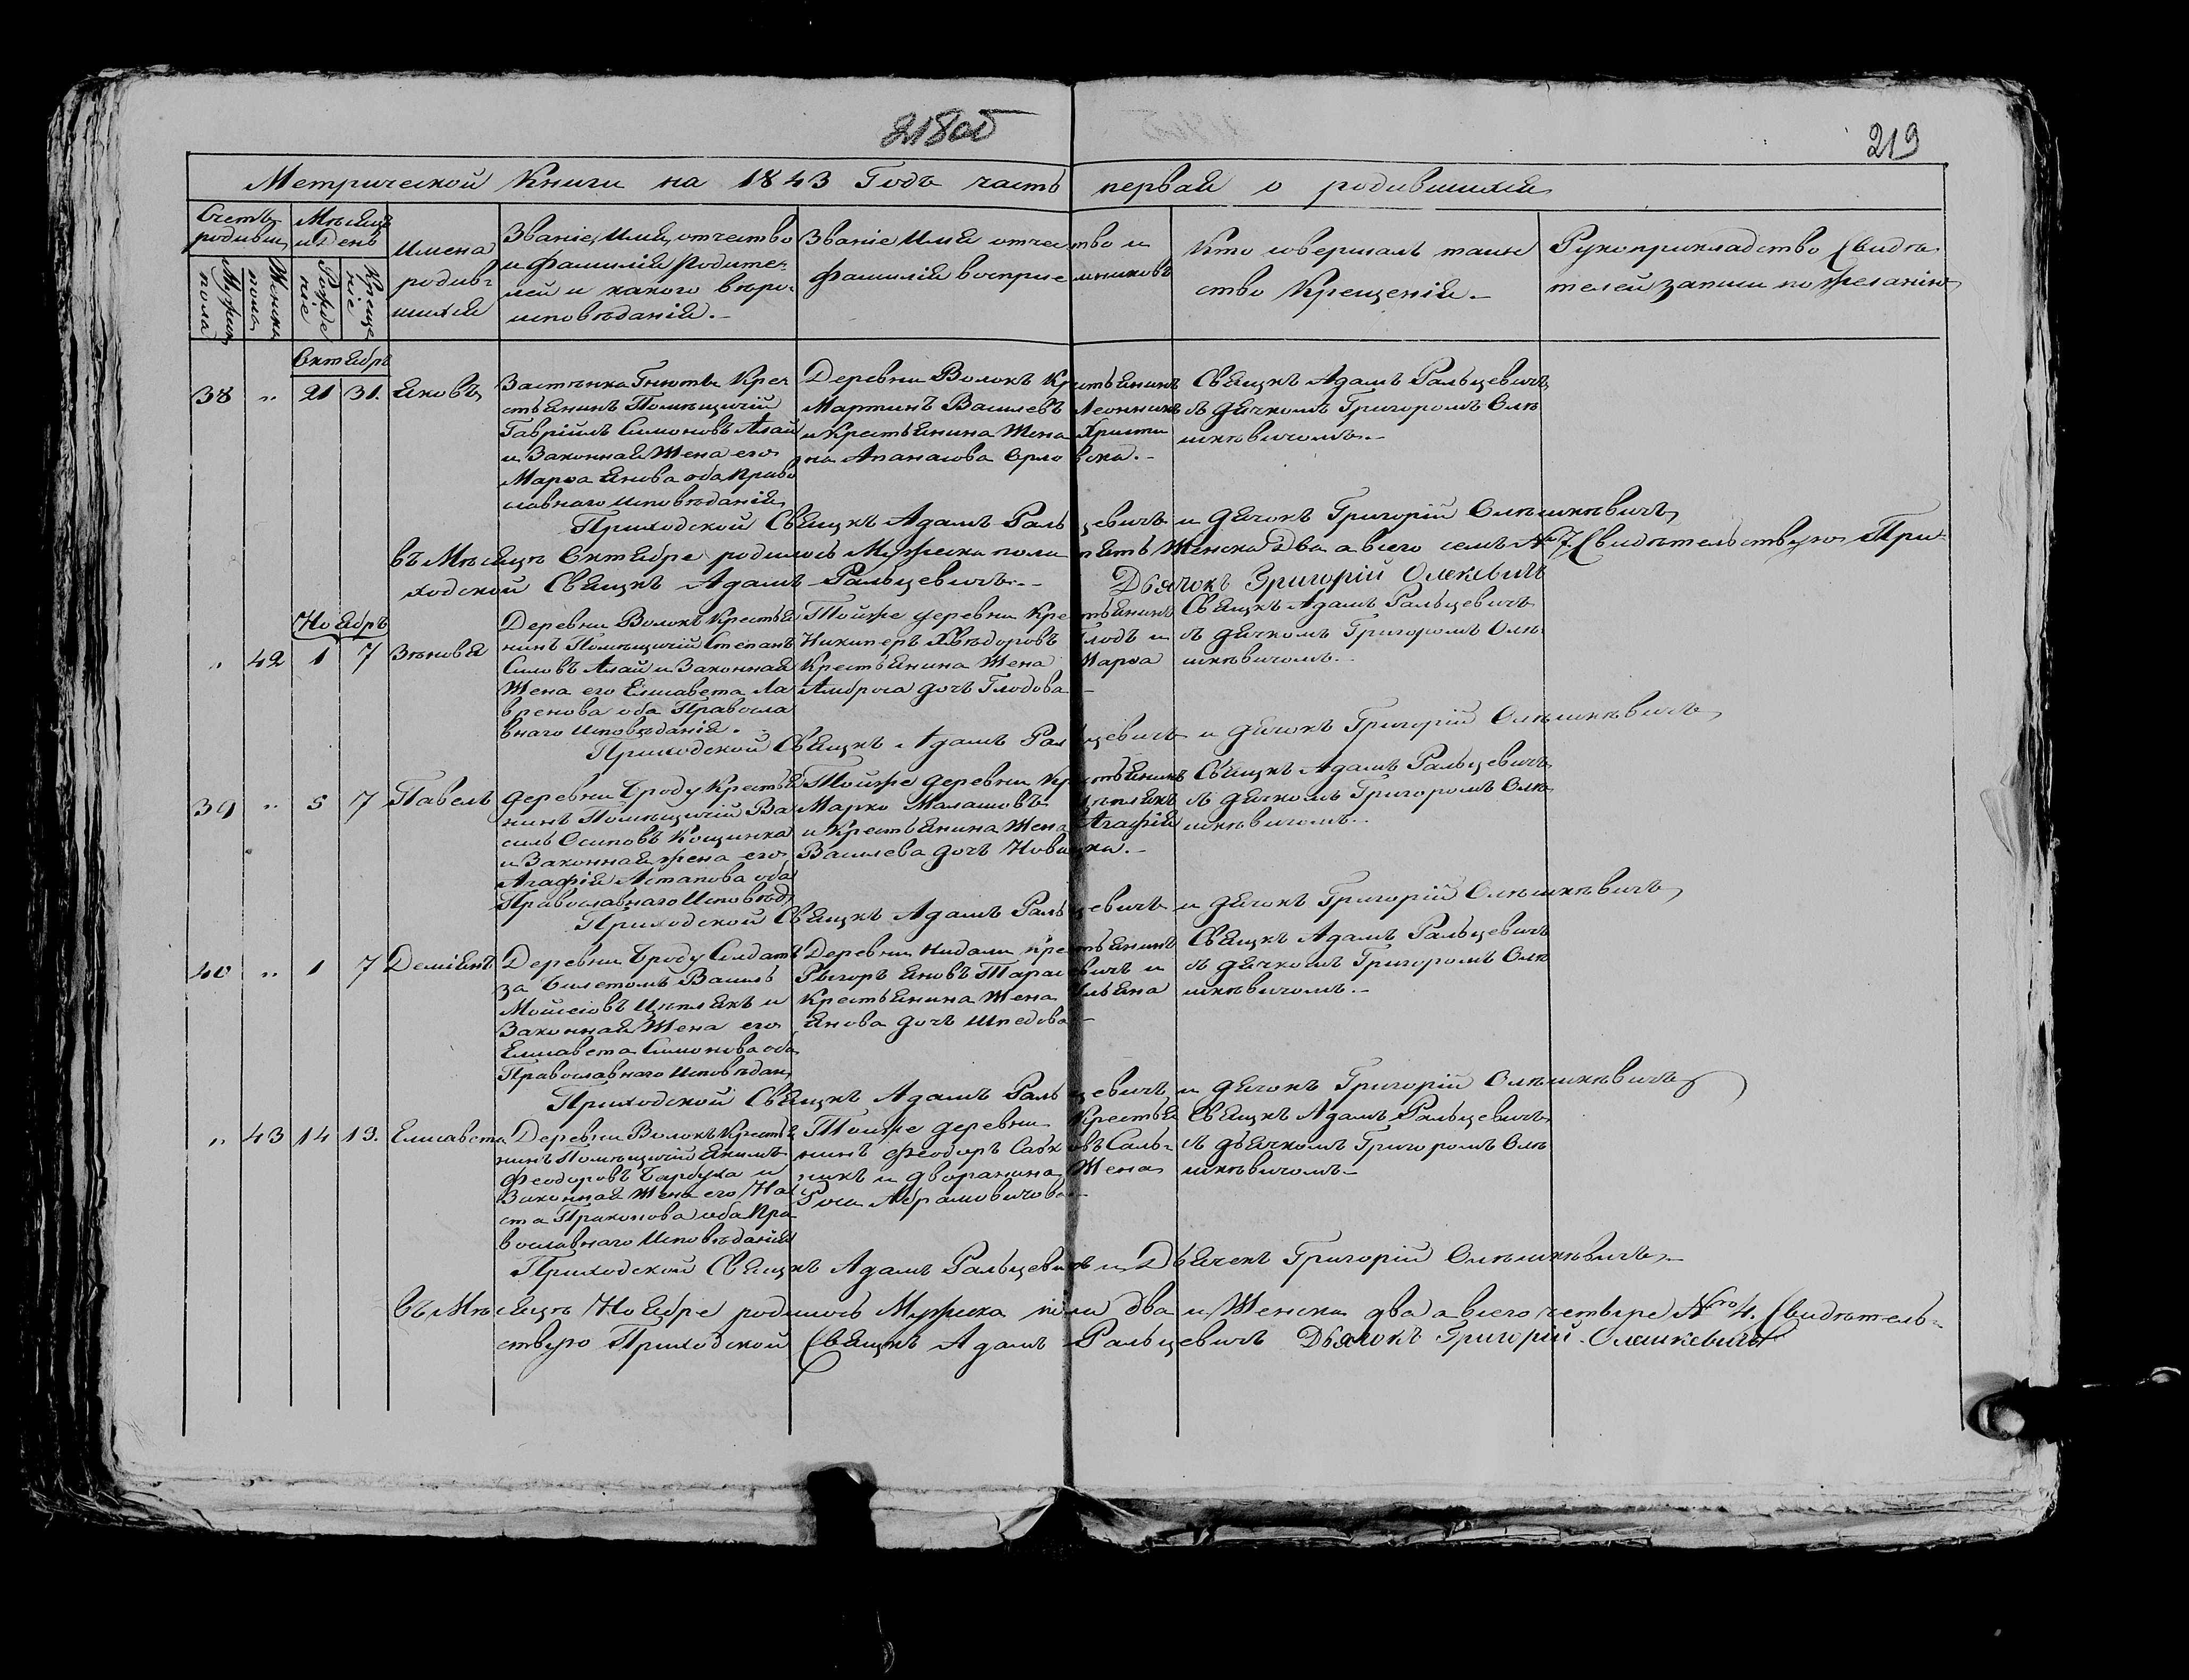 218об
219
Метрической Книги на 1843 Годъ часть первая о родившихся
Счетъ родивш.
Мужск. пола
Женска пола
Мѣсяцъ и День
Рожденіе
Крещеніе
Имена родившихся
Званіе, Имя, отчество
и фамилія Родите-
лей и какого вѣро-
исповѣданія.
Званіе Имя отчество и
фамилія воспріемниковъ
Кто совершалъ таин
ство Крещенія.
Рукоприкладство свидѣ
телей записи по желанію
Октябрь
38 " 21 31. Яковъ
Застѣнка Гнютъ Крес
стьянинъ Помѣщичій
Гавріилъ Симоновъ Алай
и Законная Жена его
Марѳа Янова оба Право
славнаго исповѣданія
Деревни Волокъ Крестьянинъ
Мартинъ Василевъ
и Крестьянина Жена Христи
на Апанасова Орловска.
Свящкъ Адамъ Ральцевичъ
съ дячкомъ Григоромъ Олѣ
шкѣвичомъ.
Приходской Свящкъ Адамъ Ральцевичъ и дячокъ Григорій Олѣшкѣвичъ
въ Мѣсяцѣ Октябре родилось Мужска пола пять Женска Два а всего семъ № 7. Свидѣтельствую При-
ходской Свящкъ Адамъ Ральцевичъ. Дьячокъ Григорій
Ноябрь
" 42 1 7 Зѣновя
Деревни Волокъ Крестья
нинъ Помѣщичій Степанъ
Силовъ Алай и Законная
Жена его Елисавета Ла
вренова оба Правосла
внаго Исповѣданія.
Тойже деревни Крестьянинъ
Никиперъ Хвѣдоровъ Глодъ и
Крестьянина Жена Марѳа
Амброса дочъ Глодова
Свящкъ Адамъ Ральцевичъ
съ дячкомъ Григоромъ Олѣ
шкѣвичомъ.
Приходской Свящкъ Адамъ Ральцевичъ и дячокъ Григорій Олѣшкѣвичъ
39 " 5 7 Павелъ
деревни Броду Крестья
нинъ Помѣщичій Ва
силь Осиповъ Кощинка
и Законная жена его
Агафія Астапова оба
Православнаго Исповѣд
Тойже деревни Крестьянинъ
Марко Малашовъ Цѣплякъ
и Крестьянина Жена Агафія
Василева дочъ
Свящкъ Адамъ Ральцевичъ
съ дячкомъ Григоромъ Олѣ
шкѣвичомъ.
Приходской Свящкъ Адамъ Ральцевичъ и дячокъ Григорій Олѣшкѣвичъ
40 " 1 7 Деміянъ
Деревни Броду Солдатъ
за билетомъ Василь
Мойсіовъ Цѣплякъ и
Законная Жена его
Елисавета Симонова оба
Православнаго Исповѣдан
Деревни крестьянинъ
Рыгоръ Яновъ Тарасевичъ и
Крестьянина Жена Ульяна
Янова дочъ Шпедова
Свящкъ Адамъ Ральцевичъ
съ дячкомъ Григоромъ Олѣ
шкѣвичомъ.
Приходской Свящкъ Адамъ Ральцевичъ и дячокъ Григорій Олѣшкѣвичъ
" 43 14 19. Елисавета
Деревни Волокъ Крестья
нинъ Помѣщичій Якимъ
Феодоровъ Барбуха и
Законная Жена его На
ста Прокопова оба Пра
вославнаго Исповѣданія
Тойже деревни Крестья
нинъ Феодоръ Саль-
никъ и дворанина Жена
Роса Абрамовичова
Свящкъ Адамъ Ральцевичъ
съ дьячкомъ Григоромъ Олѣ
шкѣвичомъ
Приходской Свящкъ Адамъ Ральцевичъ и Дьячекъ Григорій Олѣшкѣвичъ
въ Мѣсяцѣ Ноябре родилось Мужска пола два и Женска два а всего четыре №ро 4. Свидѣтель-
ствую Приходской Свящкъ Адамъ Ральцевичъ Дьячокъ Григорій Олешкевичъ